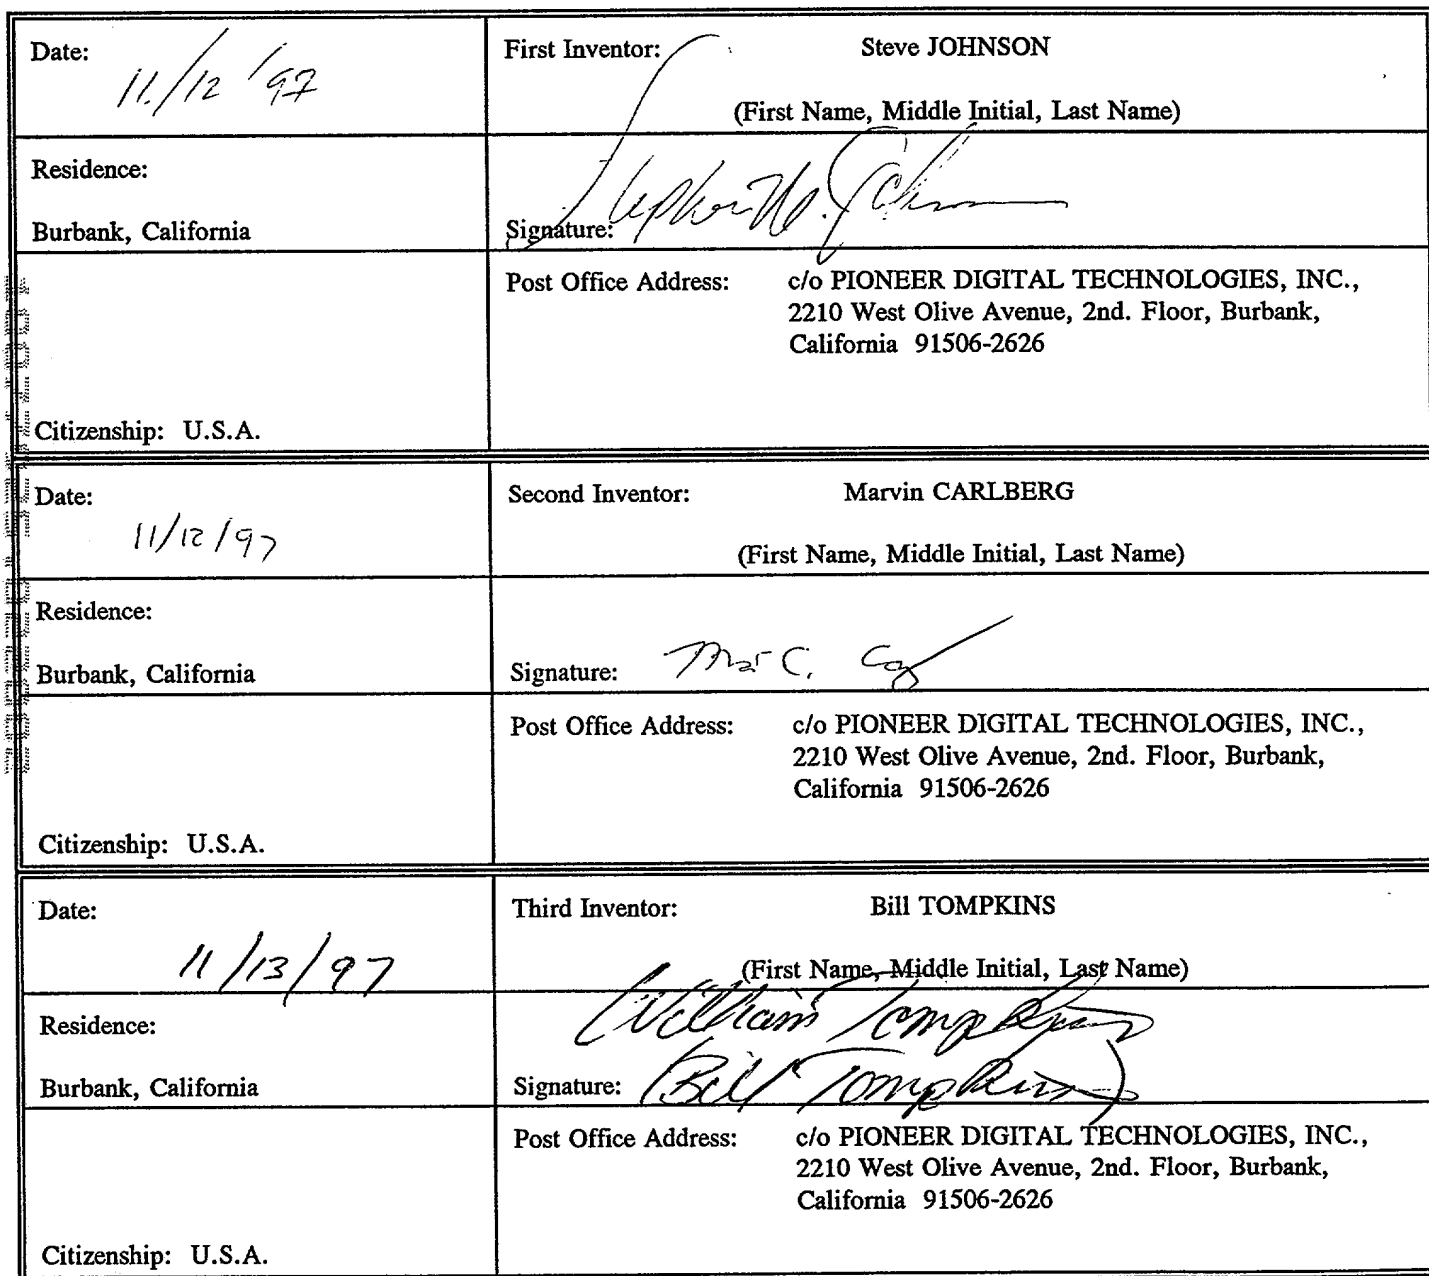 Date:
11/12 '97
First Inventor: Steve JOHNSON
(First Name, Middle Initial, Last Name)
Residence:
Burbank, California
Signature: Stephen M. Johnson
Post Office Address: c/o PIONEER DIGITAL TECHNOLOGIES, INC.,
2210 West Olive Avenue, 2nd. Floor, Burbank,
California 91506-2626
Citizenship: U.S.A.
Date:
11/12/97
Second Inventor: Marvin CARLBERG
(First Name, Middle Initial, Last Name)
Residence:
Burbank, California
Signature:
Post Office Address: c/o PIONEER DIGITAL TECHNOLOGIES, INC.,
2210 West Olive Avenue, 2nd. Floor, Burbank,
California 91506-2626
Citizenship: U.S.A.
Date:
11/13/97
Third Inventor: Bill TOMPKINS
(First Name, Middle Initial, Last Name)
Residence:
Burbank, California
William Tompkins
Signature: (Bill Tompkins)
Post Office Address: c/o PIONEER DIGITAL TECHNOLOGIES, INC.,
2210 West Olive Avenue, 2nd. Floor, Burbank,
California 91506-2626
Citizenship: U.S.A.